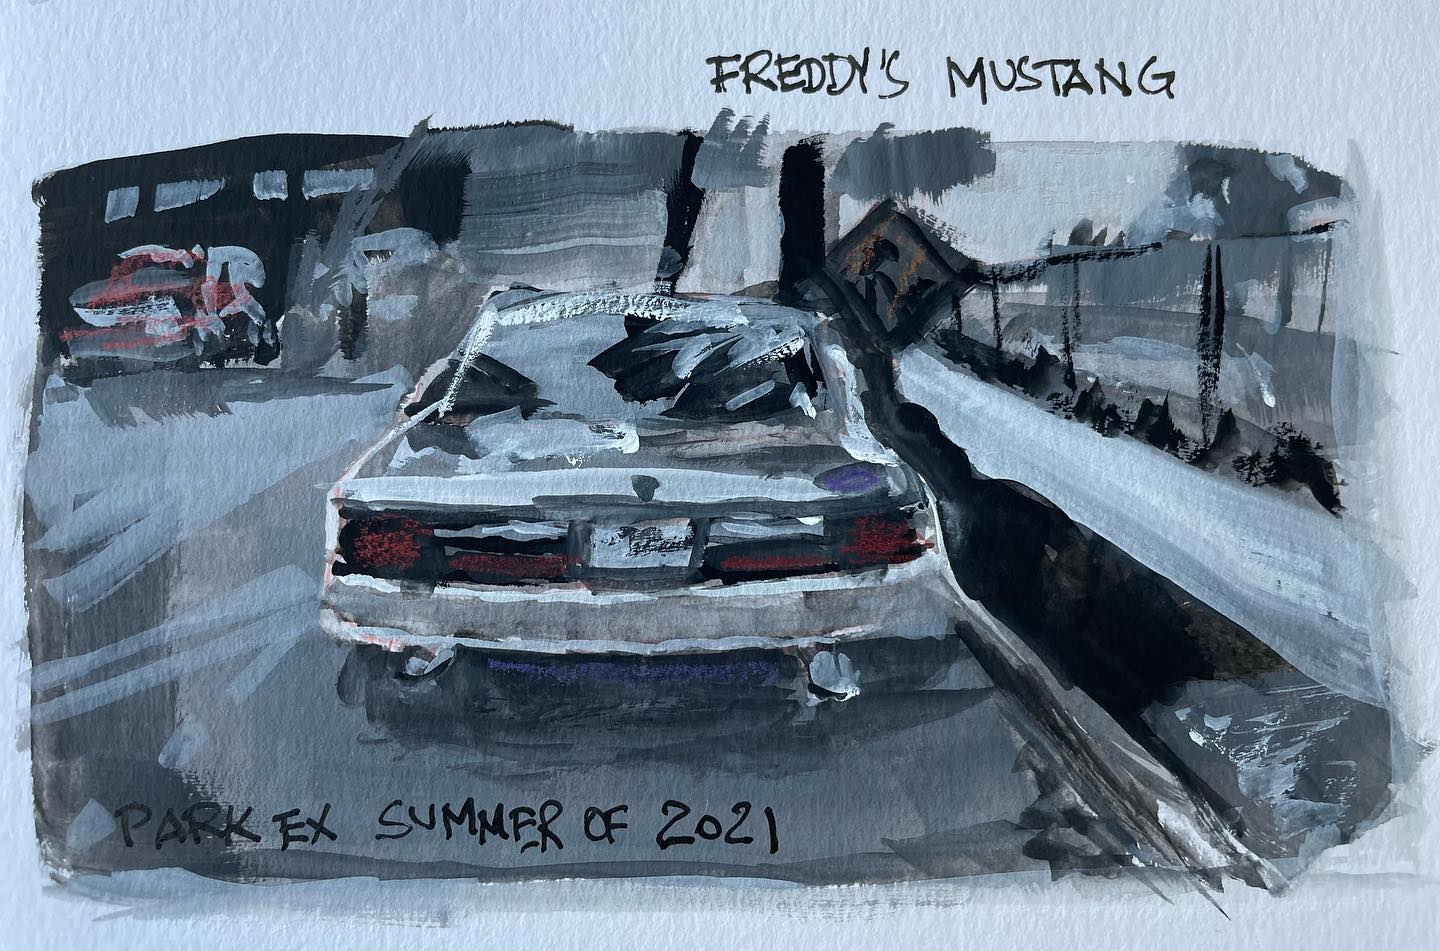 FREDDY'S MUSTANG
PARK EX SUMMER OF 2021